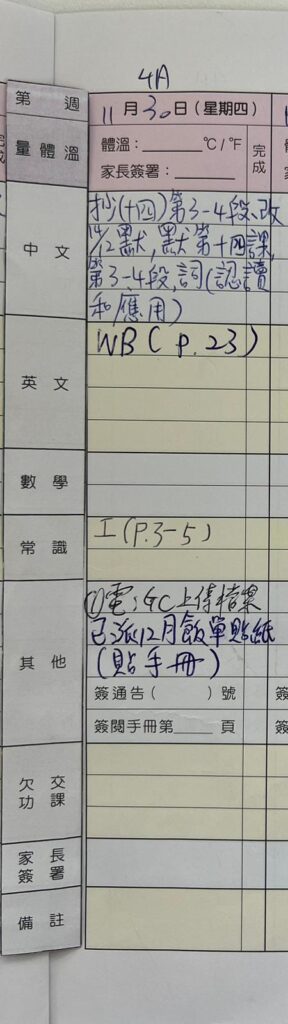 4A
第 週
11月30日(星期四)
量體溫
體溫：________℃/℉
家長簽署：________
完成
中文
抄(十四)第3-4段,改
14/12默,默第十四課,
第3-4段,詞(認讀
和應用)
英文
WB(P.23)
數學
常識
工(P.3-5)
其他
①電:GC上傳檔案
已派12月飯單貼紙
(貼手冊)
簽通告( )號
簽閱手冊第____頁
欠交功課
家長簽署
備註